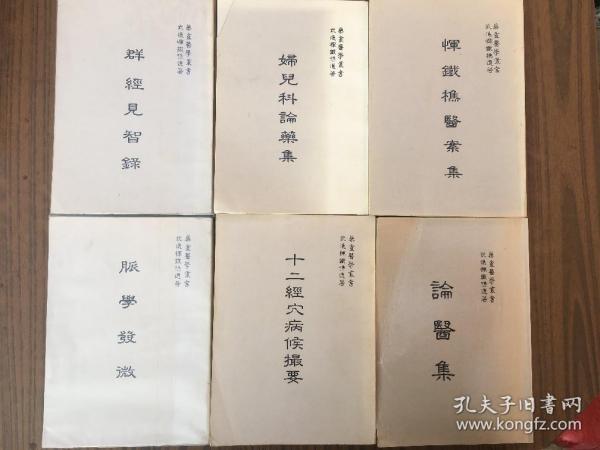 藥盦醫學叢書
武進惲鐵樵遺著
群經見智錄
藥盦醫學叢書
武進惲鐵樵遺著
婦兒科論藥集
藥盦醫學叢書
武進惲鐵樵遺著
惲鐵樵醫案集
藥盦醫學叢書
武進惲鐵樵遺著
脈學發微
藥盦醫學叢書
武進惲鐵樵遺著
十二經穴病候撮要
藥盦醫學叢書
武進惲鐵樵遺著
論醫集
孔夫子旧書网
www.kongfz.com